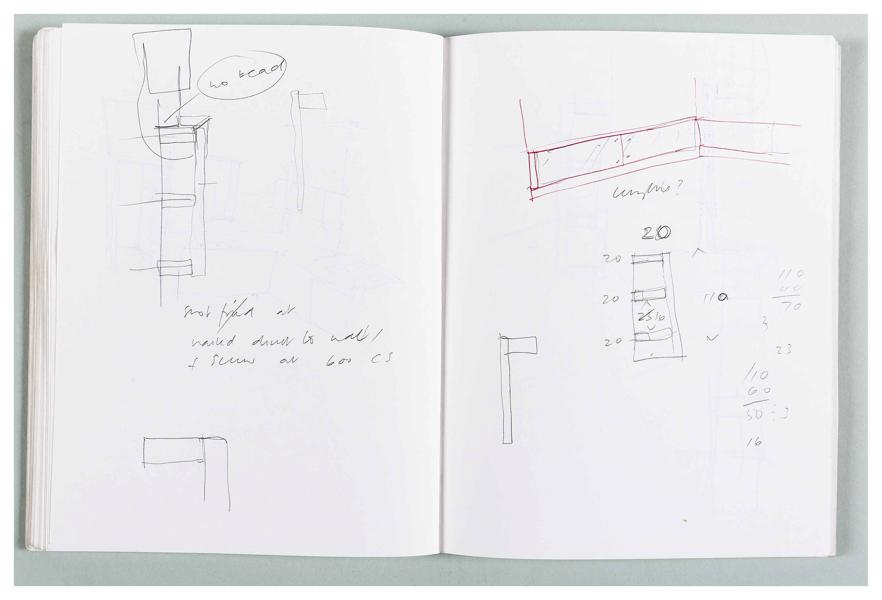 no bead
shot fixed at
nailed direct to wall /
+ screw at 600 CS
20
20
110
20
110
70
3
23
110
60
50 ÷ 3
16